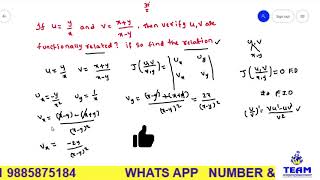 If u = y/x and v = x+y/x-y, then verify u, v are
functionally related? if so find the relation.
u = y/x v = x+y/x-y J(u,v/x,y) = |ux uy vx vy| J(u,v/x,y) = 0 F.D
≠ 0 F.I.D
ux = -y/x² uy = 1/x
vx = (x-y) - (x+y)/(x-y)² vy = (x-y) + (x+y)/(x-y)² = 2x/(x-y)² (u/v)' = vu' - uv'/v²
vx = -2y/(x-y)²
9885875184 WHATS APP NUMBER &
TEAM